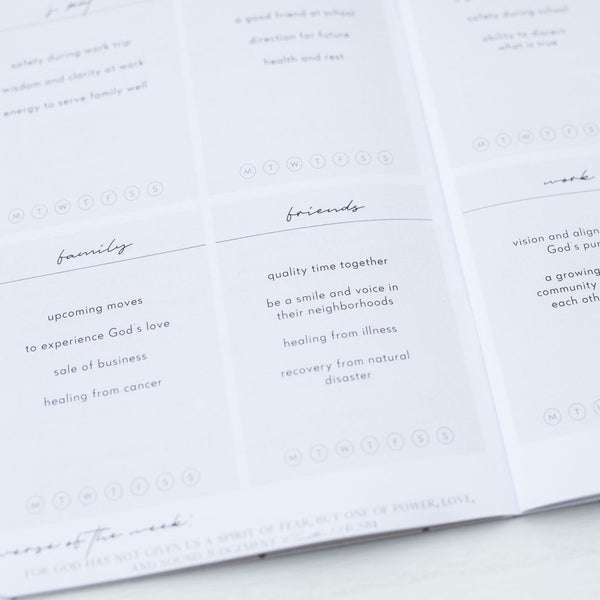 safety during work trip
wisdom and clarity at work
energy to serve family well
M T W T F S S
a good friend at school
direction for future
health and rest
M T W T F S S
safety during school
ability to discern
what is true
M T W T F S
family
upcoming moves
to experience God's love
sale of business
healing from cancer
M T W T F S S
friends
quality time together
be a smile and voice in
their neighborhoods
healing from illness
recovery from natural
disaster
M T W T F S S
work
vision and align
God's pur
a growing
community
each oth
M T
verse of the week
FOR GOD HAS NOT GIVEN US A SPIRIT OF FEAR, BUT ONE OF POWER, LOVE,
AND SOUND JUDGEMENT (CSB)